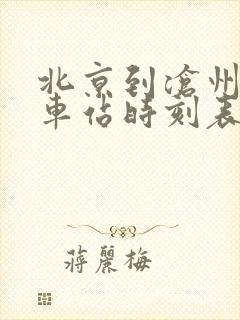 北京到滄州
車佔時刻表
蔣麗梅